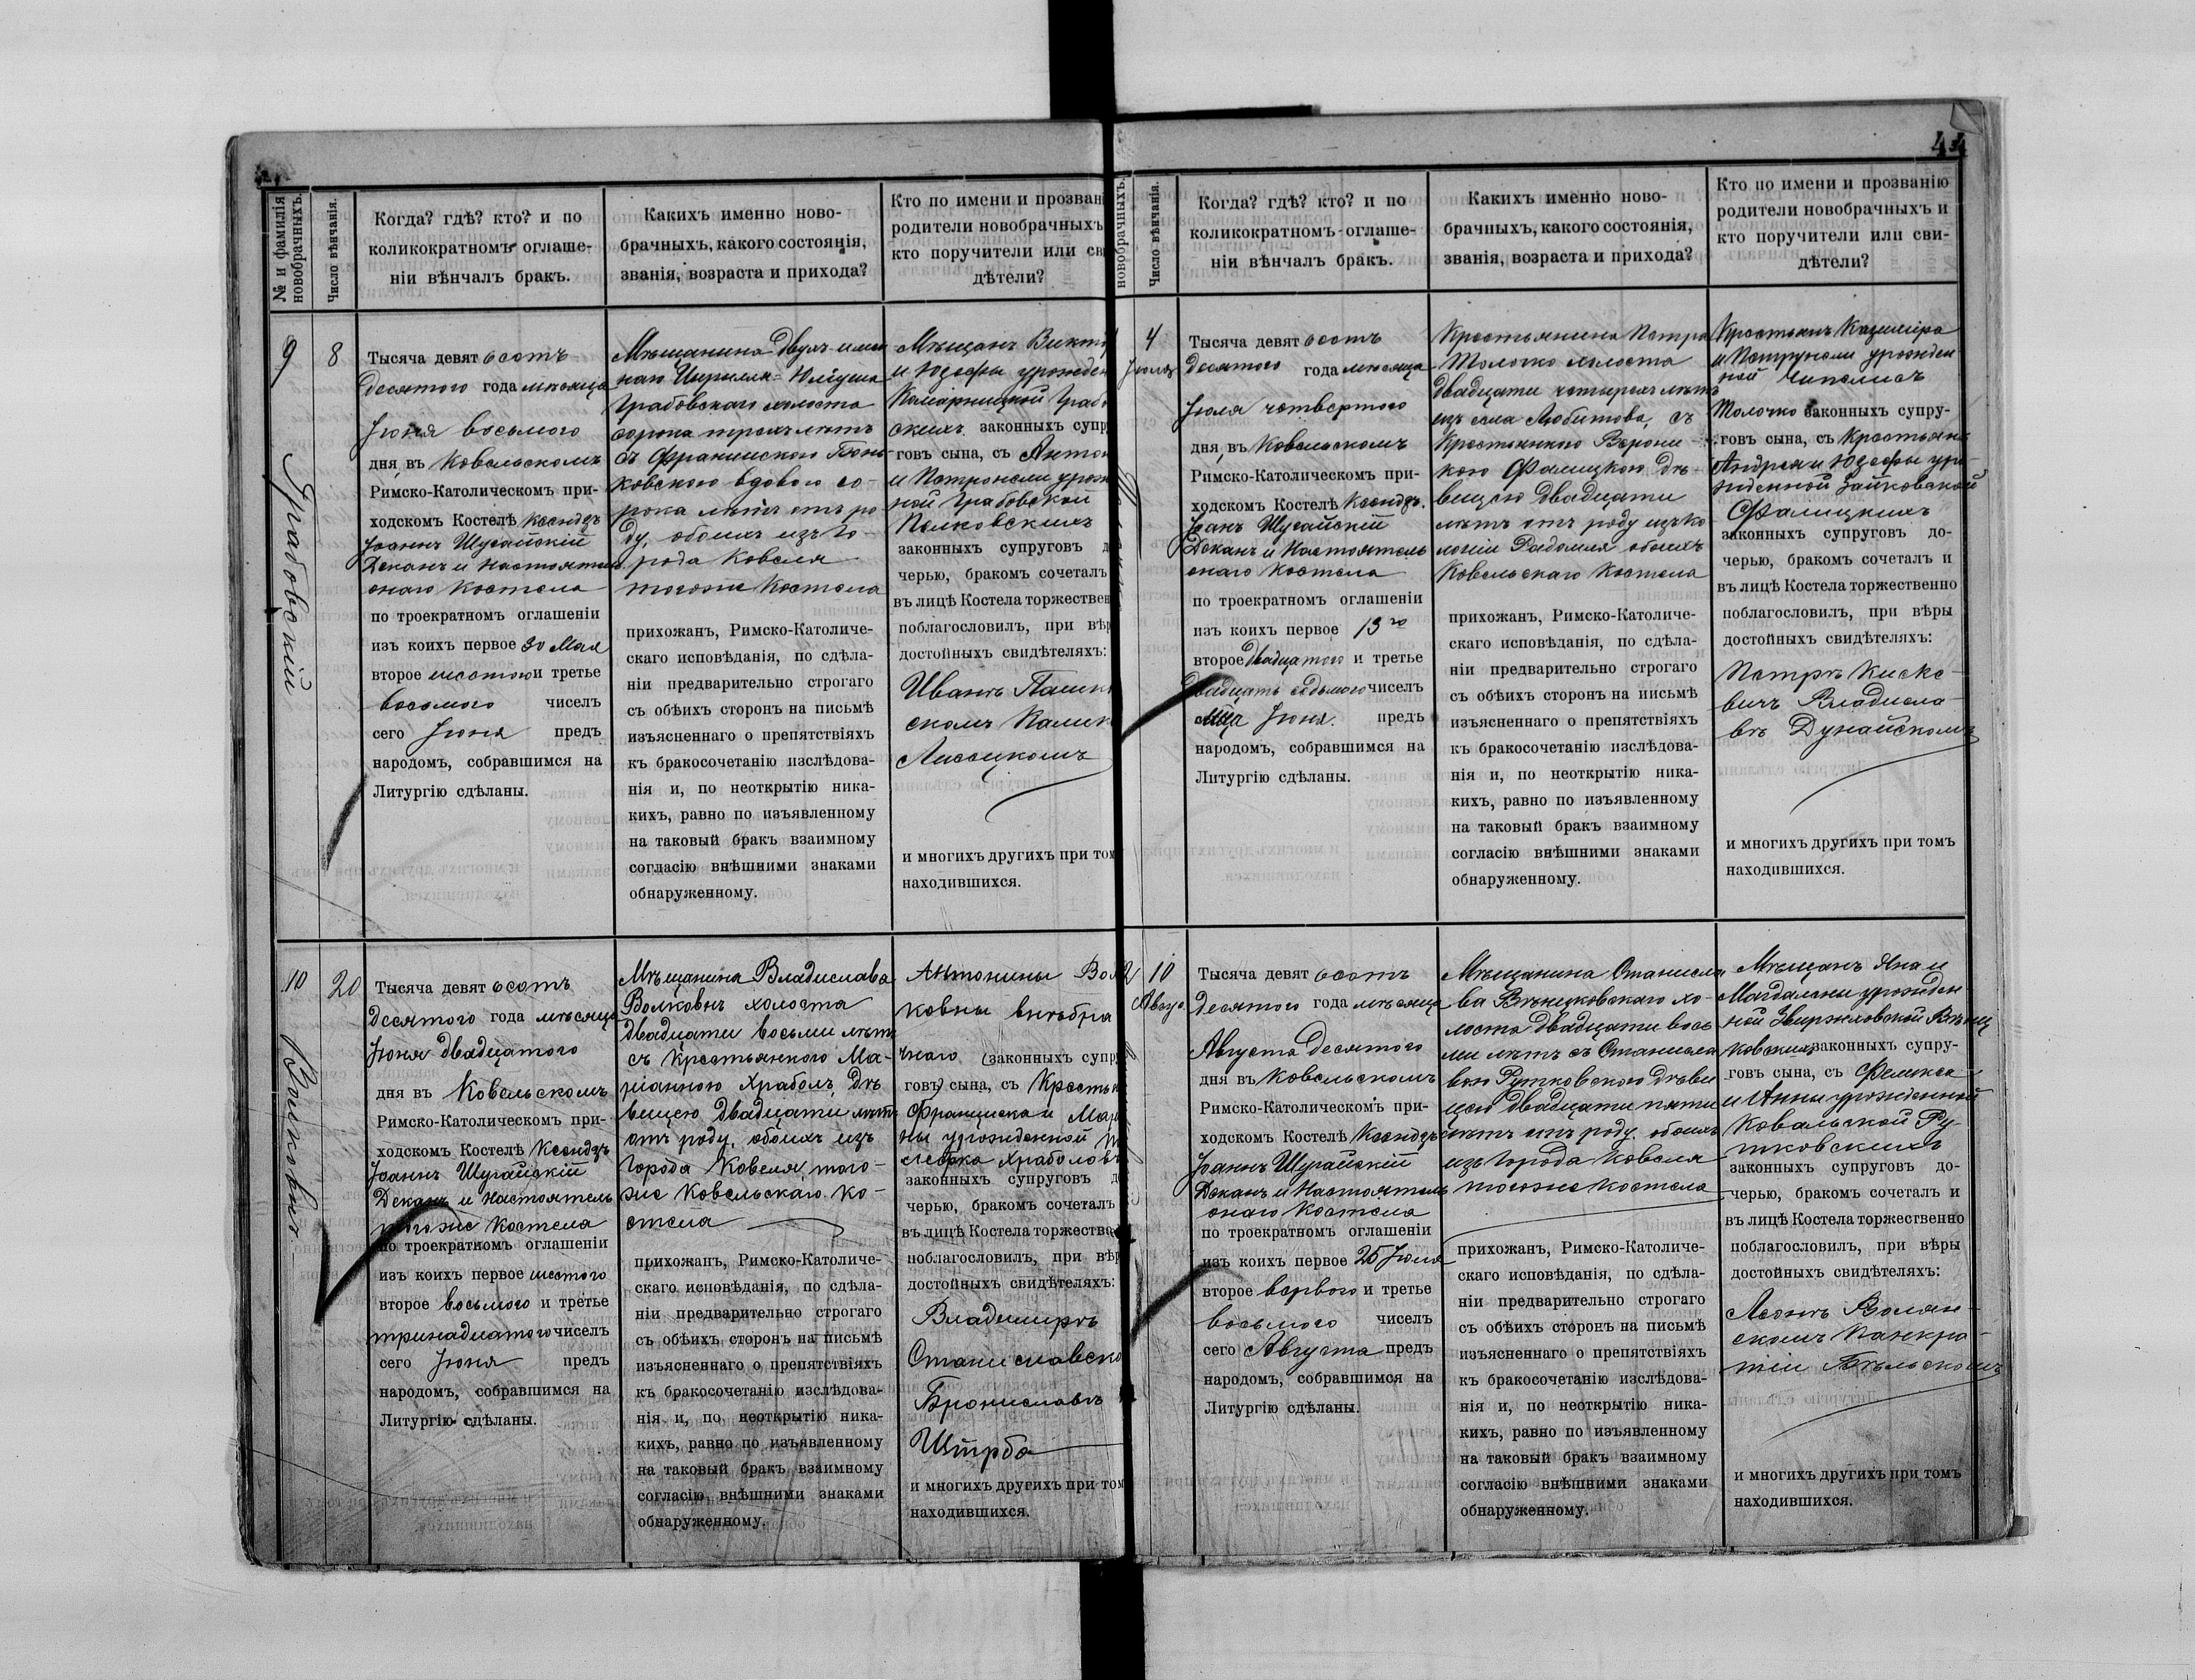 № и фамилія
новобрачныхъ.
Число вѣнчанія.
Когда? гдѣ? кто? и по
коликократномъ оглаше-
ніи вѣнчалъ бракъ.
Какихъ именно ново-
брачныхъ, какого состоянія,
званія, возраста и прихода?
Кто по имени и прозван
родители новобрачныхъ
кто поручители или св
дѣтели?
9
Грабовскій
8
Тысяча девят осотъ
десятого года мѣсяца
Іюня восьмого
дня въ Ковельскомъ
Римско-Католическомъ при-
ходскомъ Костелѣ Ксендзъ
Іоаннъ Шугайскій
Деканъ и Настоятель
онаго Костела
по троекратномъ оглашеніи
изъ коихъ первое 30 Мая
второе шестого и третье
восьмого чиселъ
сего Іюня предъ
народомъ, собравшимся на
Литургію сдѣланы.
Мѣщанина двухъ имен
наго Кирилла-Юліуша
Грабовскаго холоста
сорока трехъ лѣтъ
съ Франциской
ковскою вдовою со-
рока лѣтъ отъ ро
ду, обоихъ изъ го-
рода Ковеля
тогоже Костела
прихожанъ, Римско-Католиче-
скаго исповѣданія, по сдѣла-
ніи предварительно строгаго
съ обѣихъ сторонъ на письмѣ
изъясненнаго о препятствіяхъ
къ бракосочетанію изслѣдова-
нія и, по неоткрытію ника-
кихъ, равно по изъявленному
на таковый бракъ взаимному
согласію внѣшними знаками
обнаруженному.
Мѣщанъ Викто
и Юзефы урожден
Комарницкой Грабо
скихъ законныхъ супр
говъ сына, съ Антон
и Петронели урож
ной Грабовской
законныхъ супруговъ д
черью, бракомъ сочеталъ
въ лицѣ Костела торжествен
поблагословилъ, при вѣр
достойныхъ свидѣтеляхъ:
Иванъ Пашк
скомъ
Лисецкомъ
и многихъ другихъ при том
находившихся.
10
Волковъ
20
Тысяча девят осотъ
десятого года мѣсяца
Іюня двадцатого
дня въ Ковельскомъ
Римско-Католическомъ при-
ходскомъ Костелѣ Ксендзъ
Іоаннъ Шугайскій
Деканъ и Настоятель
тогоже Костела
по троекратномъ оглашеніи
изъ коихъ первое шестого
второе восьмого и третье
тринадцатого чиселъ
сего Іюня предъ
народомъ, собравшимся на
Литургію сдѣланы.
Мѣщанина Владислава
Волковъ холоста
двадцати восьми лѣтъ
съ крестьянкою Ма-
ріанною Храболъ дѣ
вицею двадцати лѣтъ
отъ роду, обоихъ изъ
города Ковеля того-
же Ковельскаго Ко-
стела
прихожанъ, Римско-Католиче-
скаго исповѣданія, по сдѣла-
ніи предварительно строгаго
съ обѣихъ сторонъ на письмѣ
изъясненнаго о препятствіяхъ
къ бракосочетанію изслѣдова-
нія и, по неоткрытію ника-
кихъ, равно по изъявленному
на таковый бракъ взаимному
согласію внѣшними знаками
обнаруженному.
Антонины Вол
ковны внѣбра
чнаго (законныхъ супр
говъ) сына, съ Крестьян
Франциска и Мар
ны урожденной
Храболовъ
законныхъ супруговъ д
черью, бракомъ сочеталъ
въ лицѣ Костела торжества
поблагословилъ, при вѣр
достойныхъ свидѣтеляхъ:
Владимиръ
Станиславско
Брониславъ
Штрба
и многихъ другихъ при том
находившихся.
44
новобрачныхъ.
Число вѣнчанія.
Когда? гдѣ? кто? и по
коликократномъ оглаше-
ніи вѣнчалъ бракъ.
Какихъ именно ново-
брачныхъ, какого состоянія,
званія, возраста и прихода?
Кто по имени и прозванію
родители новобрачныхъ и
кто поручители или сви-
дѣтели?
4
Іюля
Тысяча девят осотъ
десятого года мѣсяца
Іюля четвертого
дня въ Ковельскомъ
Римско-Католическомъ при-
ходскомъ Костелѣ Ксендзъ
Іоанъ Шугайскій
Деканъ и Настоятель
онаго Костела
по троекратномъ оглашеніи
изъ коихъ первое 13го
второе двадцатого и третье
двадцать седьмого чиселъ
Іюня предъ
народомъ, собравшимся на
Литургію сдѣланы.
Крестьянина Петра
Толочко холоста
двадцати четырехъ лѣтъ
изъ села Любитова, съ
Крестьянкою Верони-
кою Фалицкою дѣ-
вицею двадцати
лѣтъ отъ роду изъ ко
лоніи Радомля обоихъ
Ковельскаго Костела
прихожанъ, Римско-Католиче-
скаго исповѣданія, по сдѣла-
ніи предварительно строгаго
съ обѣихъ сторонъ на письмѣ
изъясненнаго о препятствіяхъ
къ бракосочетанію изслѣдова-
нія и, по неоткрытію ника-
кихъ, равно по изъявленному
на таковый бракъ взаимному
согласію внѣшними знаками
обнаруженному.
Крестьянъ Казиміра
и Петрунели урожден
ной
Толочко законныхъ супру-
говъ сына, съ Крестьянъ
Андрея и Юзефы уро-
жденной Зайковской
Фалицкихъ
законныхъ супруговъ до-
черью, бракомъ сочеталъ и
въ лицѣ Костела торжественно
поблагословилъ, при вѣры
достойныхъ свидѣтеляхъ:
Петръ Киске-
вичъ Владисла-
въ Дунайскомъ
и многихъ другихъ при томъ
находившихся.
10
Авгус.
Тысяча девят осотъ
десятого года мѣсяца
Августа десятого
дня въ Ковельскомъ
Римско-Католическомъ при-
ходскомъ Костелѣ Ксендзъ
Іоаннъ Шугайскій
Деканъ и Настоятель
онаго Костела
по троекратномъ оглашеніи
изъ коихъ первое 25 Іюля
второе первого и третье
восьмого чиселъ
сего Августа предъ
народомъ, собравшимся на
Литургію сдѣланы.
Мѣщанина Станисла
ва Вѣнцковскаго хо-
лоста двадцати вось
ми лѣтъ съ Станисла
вою Рутковскою дѣви
цею двадцати пяти
лѣтъ отъ роду обоихъ
изъ города Ковеля
тогоже Костела
прихожанъ, Римско-Католиче-
скаго исповѣданія, по сдѣла-
ніи предварительно строгаго
съ обѣихъ сторонъ на письмѣ
изъясненнаго о препятствіяхъ
къ бракосочетанію изслѣдова-
нія и, по неоткрытію ника-
кихъ, равно по изъявленному
на таковый бракъ взаимному
согласію внѣшними знаками
обнаруженному.
Мѣщанъ Яна и
Магдалены урожден
ной Звиржховской Вѣнц
ковскихъ законныхъ супру-
говъ сына, съ Феликса
и Анны урожденной
Ковальской Ру-
тковскихъ
законныхъ супруговъ до-
черью, бракомъ сочеталъ и
въ лицѣ Костела торжественно
поблагословилъ, при вѣры
достойныхъ свидѣтеляхъ:
Леонъ Волян-
скомъ Панкра-
тіи Бѣльскомъ
и многихъ другихъ при томъ
находившихся.